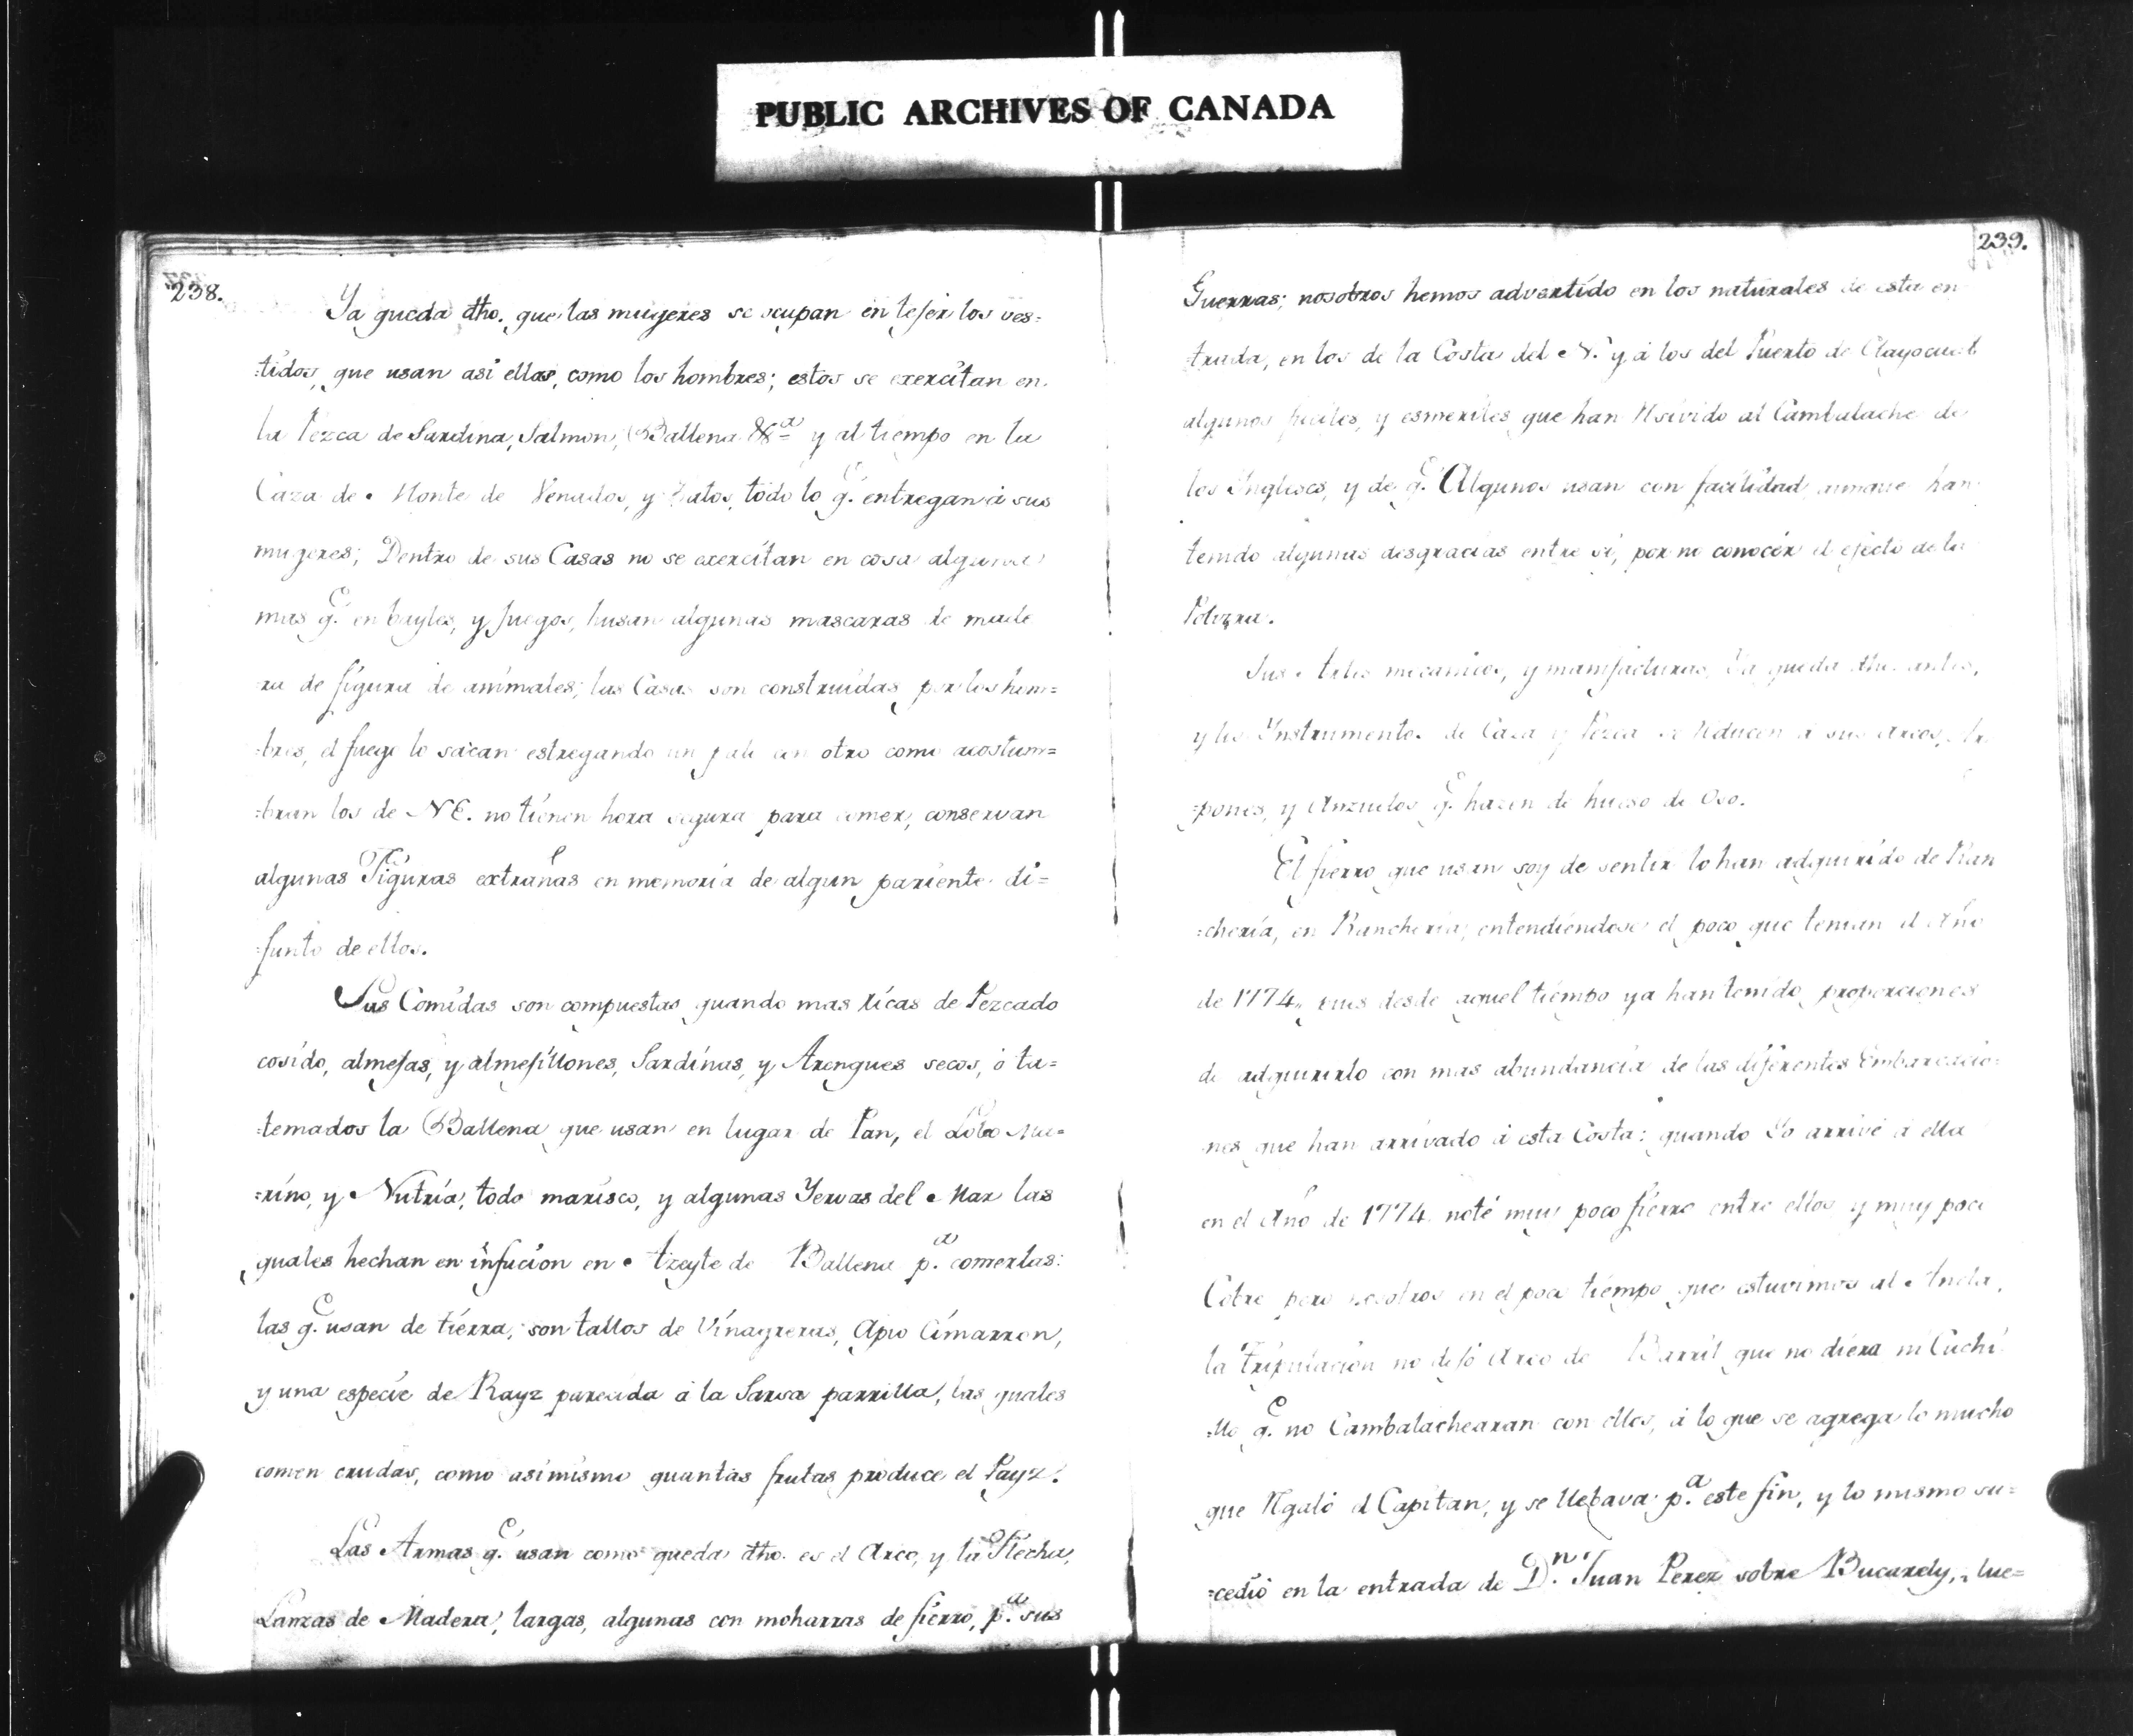 PUBLIC ARCHIVES OF CANADA
238.
Ya queda dho. que las mugeres se ocupan en tejer los ves=
=tidos, que usan asi ellas, como los hombres; estos se exercitan en
la Pezca de Sardina, Salmon, Ballena &a. y al tiempo en la
Caza de Monte de Venados, y Patos, todo lo q.e entregan á sus
mugeres; Dentro de sus Casas no se exercitan en cosa alguna
mas q.e en bayles, y Juegos, husan algunas mascaras de made
ra de figura de animales; las Casas son construidas por los hom=
=bres, el fuego lo sacan estregando un palo con otro como acostum=
=bran los de NE. no tienen hora segura para comer, conservan
algunas Figuras extrañas en memoria de algun pariente di=
=funto de ellos.
Sus Comidas son compuestas quando mas ricas de Pezcado
cosido, almejas, y almejillones, Sardinas, y Arengues secos, ó ta=
=temados la Ballena que usan en lugar de Pan, el Lobo Ma=
=rino, y Nutria, todo marisco, y algunas Yervas del Mar las
quales hechan en infucion en Azeyte de Ballena p.a comerlas:
las q.e usan de tierra, son tallos de Vinagreras, Apio Cimarron,
y una especie de Rayz parecida á la Sarsa parrilla, las quales
comen crudas, como asimismo quantas frutas produce el Payz.
Las Armas q.e usan como queda dho. es el Arco, y la Flecha,
Lanzas de Madera, largas, algunas con moharras de fierro, p.a sus
239.
Guerras; nosotros hemos advertido en los naturales de esta en
trada, en los de la Costa del N. y á los del Puerto de Clayocuat
algunos fuciles, y esmeriles que han Rsivido al Cambalache de
los Ingleses, y de q.e Algunos usan con facilidad aunque han
tenido algunas desgracias entre si, por no conocer el efecto de la
Polvora.
Sus Artes mecanicos, y manifacturas, Ya queda dho. antes,
y los Instrumentos de Caza y Pezca se Rducen á sus Arcos,
=pones, y Anzuelos q.e hazen de hueso de Oso.
El fierro que usan soy de sentir lo han adquirido de Ran
=cheria, en Rancheria, entendiendose el poco que tenian el Año
de 1774, pues desde aquel tiempo ya han tenido proporciones
de adquirirlo con mas abundancia de las diferentes Embarcacio=
nes que han arrivado á esta Costa: quando Yo arrivé á ella
en el Año de 1774 noté muy poco fierro entre ellos y muy poco
Cobre pero nosotros en el poco tiempo que estuvimos al Ancla,
la tripulacion no dejó Arco de Barril que no diera ni Cuchi
=llo q.e no Cambalachearan con ellos, á lo que se agrega lo mucho
que Rgaló el Capitan, y se llebava p.a este fin, y lo mismo su=
=cedió en la entrada de D.n Juan Perez sobre Bucarely, lue=